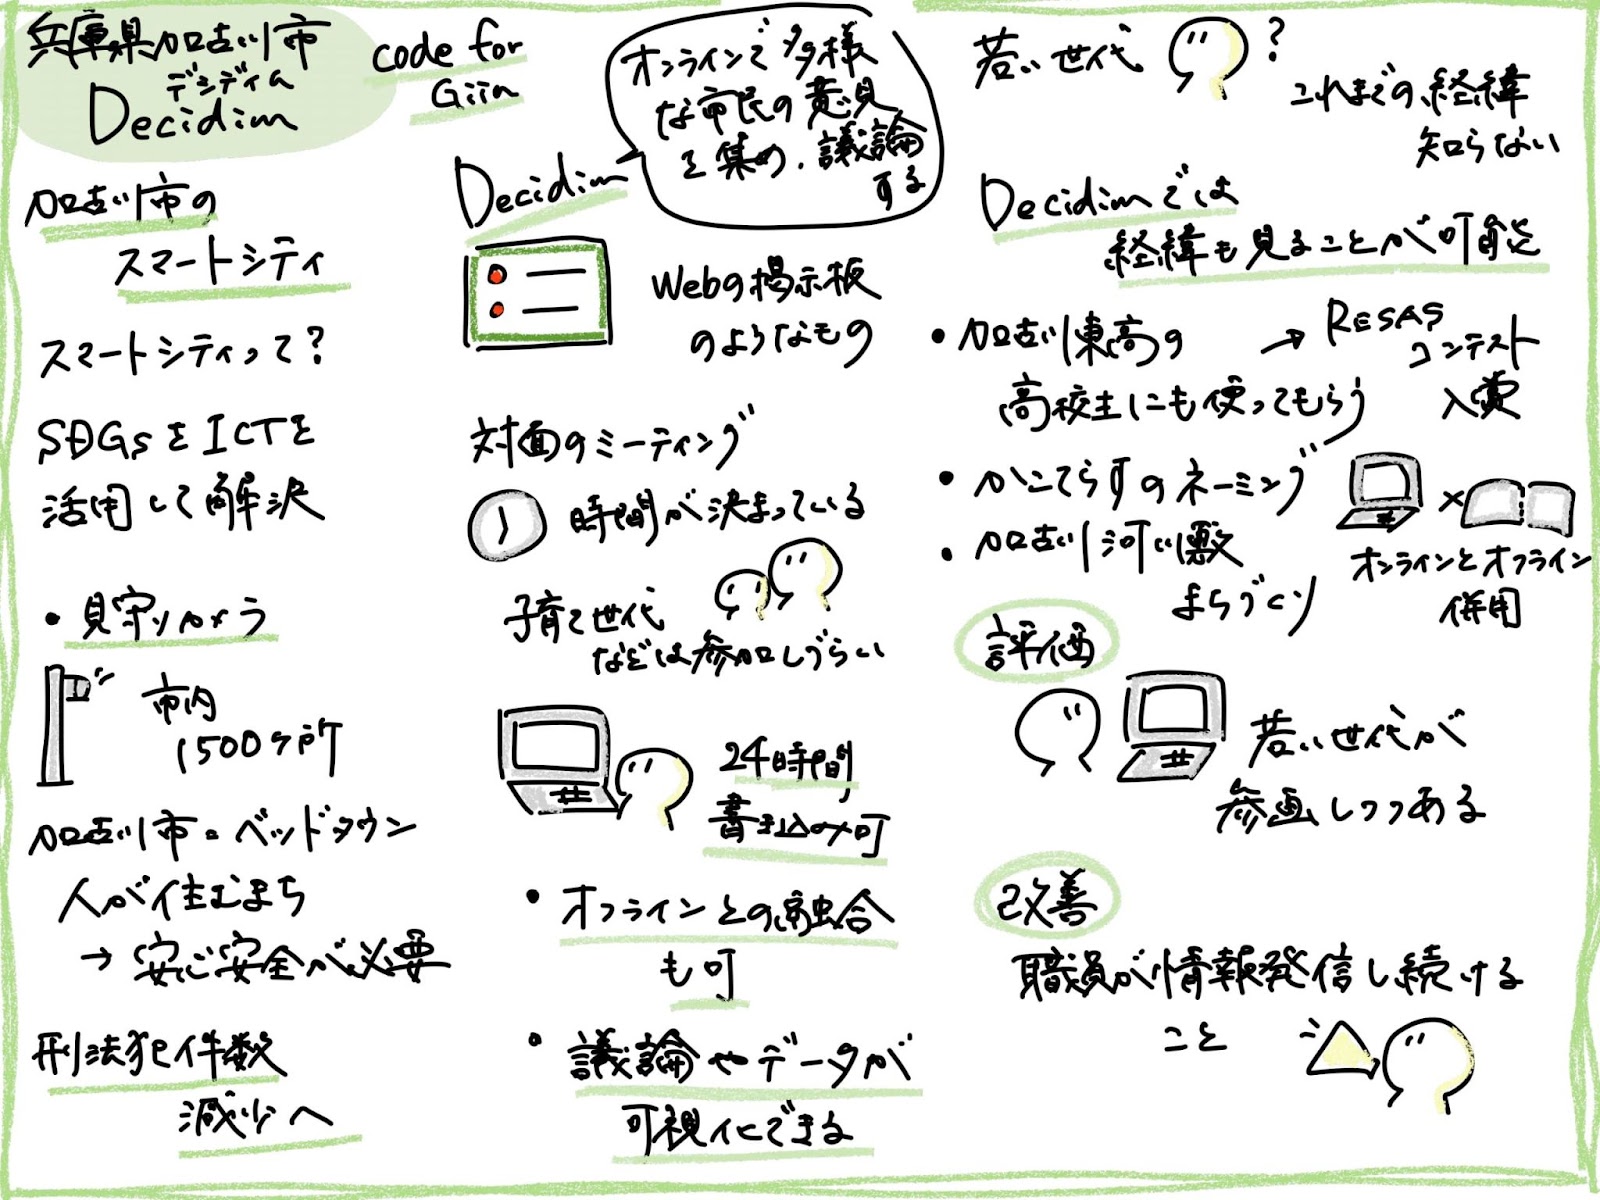 兵庫県加古川市
デシディム
Decidim
code for
Gifu
加古川市の
スマートシティ
スマートシティって?
SDGsをICTを
活用して解決
・見守りカメラ
市内
1500ヶ所
加古川市=ベッドタウン
人が住むまち
→安心安全が必要
刑法犯件数
減少へ
オンラインで多様
な市民の意見
を集め、議論
する
Decidim
Webの掲示板
のようなもの
対面のミーティング
時間が決まっている
子育て世代
などは参加しづらい
24時間
書き込み可
・オフラインとの融合
も可
・議論やデータが
可視化できる
若い世代 ?
これまでの経緯
知らない
Decidimでは
経緯も見ることが可能
・加古川東高の
高校生にも使ってもらう
→RESAS
コンテスト
入賞
・かこてらすのネーミング
・加古川河川敷
まちづくり
×
オンラインとオフライン
併用
評価
若い世代が
参画しつつある
改善
職員が情報発信し続ける
こと